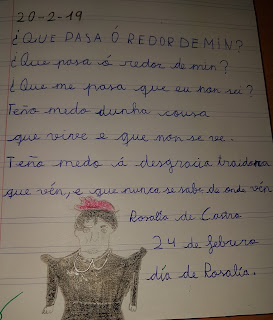 20-2-19
¿QUE PASA Ó REDOR DE MIN?
¿Que pasa ó redor de min?
¿Que me pasa que eu non sei?
Teño medo dunha cousa
que vive e que non se ve.
Teño medo á desgracia traidora
que vén, e que nunca se sabe onde vén
Rosalía de Castro
24 de febrero
día de Rosalía.